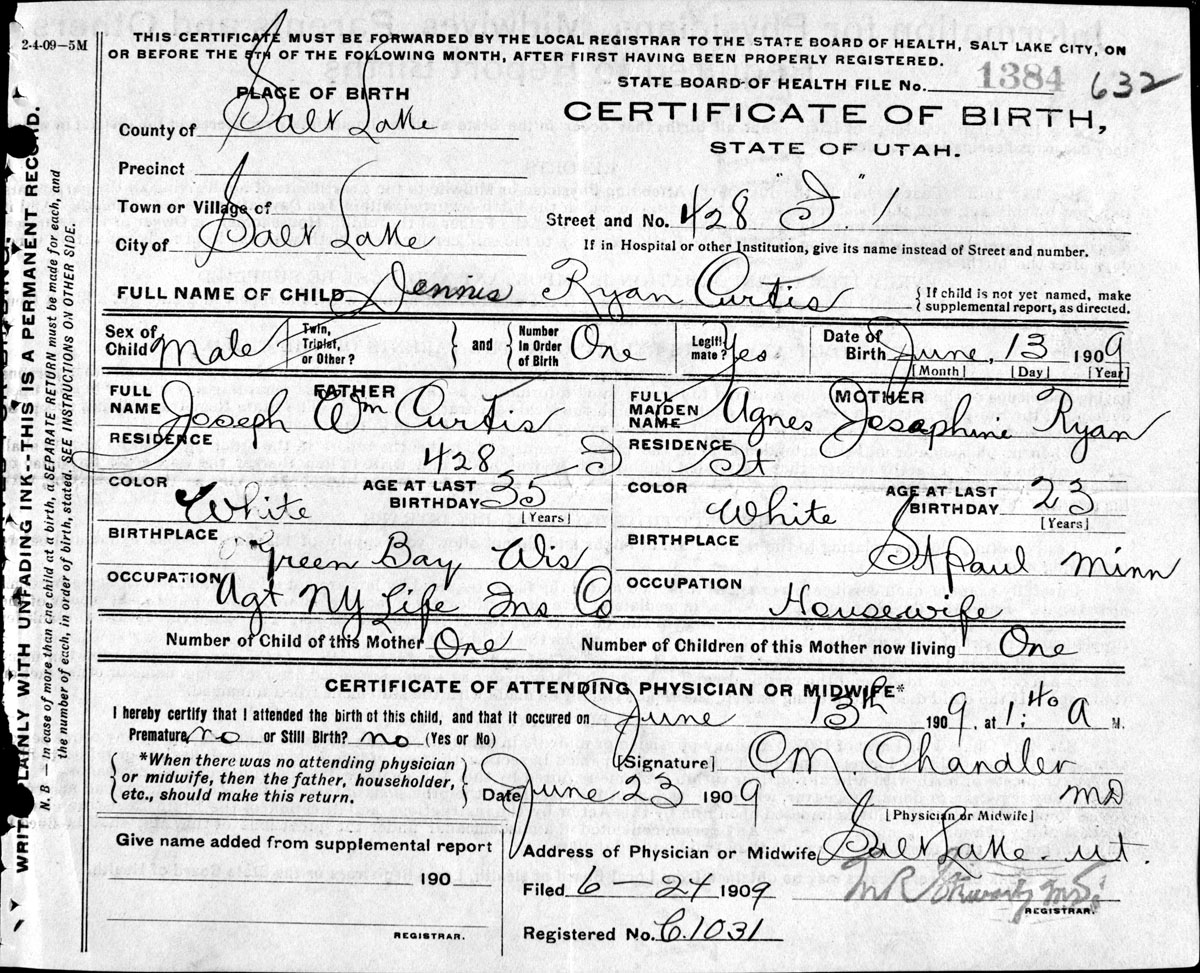 2-4-09—5M
THIS CERTIFICATE MUST BE FORWARDED BY THE LOCAL REGISTRAR TO THE STATE BOARD OF HEALTH, SALT LAKE CITY, ON
OR BEFORE THE 5TH OF THE FOLLOWING MONTH, AFTER FIRST HAVING BEEN PROPERLY REGISTERED.
STATE BOARD OF HEALTH FILE No. 1384 632
PLACE OF BIRTH
CERTIFICATE OF BIRTH,
STATE OF UTAH.
County of Salt Lake
Precinct
Town or Village of
Street and No. 428 "I"
City of Salt Lake
If in Hospital or other Institution, give its name instead of Street and number.
FULL NAME OF CHILD Dennis Ryan Curtis
{ If child is not yet named, make supplemental report, as directed.
Sex of Child Male
Twin, Triplet, or Other? } and { Number in Order of Birth One
Legitimate? Yes
Date of Birth June, 13 1909
[Month] [Day] [Year]
FATHER
FULL NAME Joseph Wm Curtis
MOTHER
FULL MAIDEN NAME Agnes Josephine Ryan
RESIDENCE 428 I
RESIDENCE St.
COLOR White
AGE AT LAST BIRTHDAY 35
[Years]
COLOR White
AGE AT LAST BIRTHDAY 23
[Years]
BIRTHPLACE Green Bay Wis
BIRTHPLACE St Paul Minn
OCCUPATION Agt NY Life Ins Co
OCCUPATION Housewife
Number of Child of this Mother One
Number of Children of this Mother now living One
CERTIFICATE OF ATTENDING PHYSICIAN OR MIDWIFE*
I hereby certify that I attended the birth of this child, and that it occured on June 13th 1909, at 1:40 A M.
Premature no or Still Birth? no (Yes or No)
*When there was no attending physician
or midwife, then the father, householder,
etc., should make this return.
[Signature] O M Chandler
MD
Date June 23 1909
[Physician or Midwife]
Give name added from supplemental report
190
REGISTRAR.
Address of Physician or Midwife Salt Lake - Ut.
Filed 6-24 1909
REGISTRAR.
Registered No. C.1031
WRITE PLAINLY WITH UNFADING INK—THIS IS A PERMANENT RECORD.
N. B.—In case of more than one child at a birth, a SEPARATE RETURN must be made for each, and
the number of each, in order of birth, stated. SEE INSTRUCTIONS ON OTHER SIDE.